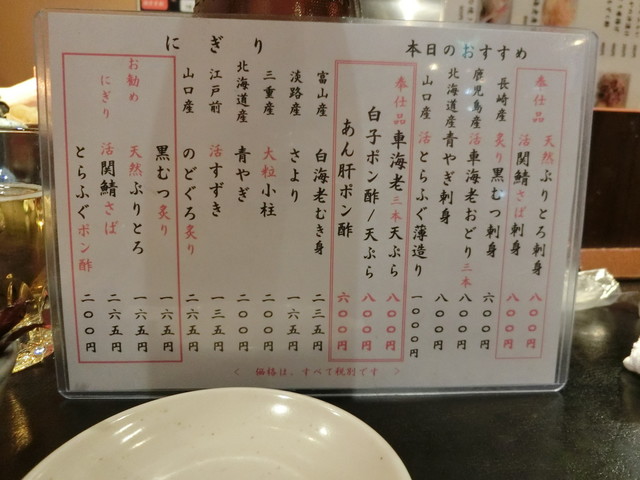 本日のおすすめ
奉仕品 天然ぶりとろ刺身 八〇〇円
活関鯖さば刺身 八〇〇円
長崎産 炙り黒むつ刺身 六〇〇円
鹿児島産 活車海老おどり三本 八〇〇円
北海道産 青やぎ刺身 八〇〇円
山口産 活とらふぐ薄造り 一〇〇〇円
奉仕品 車海老三本天ぷら 八〇〇円
白子ポン酢/天ぷら 八〇〇円
あん肝ポン酢 六〇〇円
にぎり
富山産 白海老むき身 二三五円
淡路産 さより 一六五円
三重産 大粒小柱 二〇〇円
北海道産 青やぎ 二〇〇円
江戸前 活すずき 一三五円
山口産 のどぐろ炙り 二六五円
お勧めにぎり
黒むつ炙り 一六五円
天然ぶりとろ 一六五円
活関鯖さば 二六五円
とらふぐポン酢 二〇〇円
〈 価格は、すべて税別です 〉